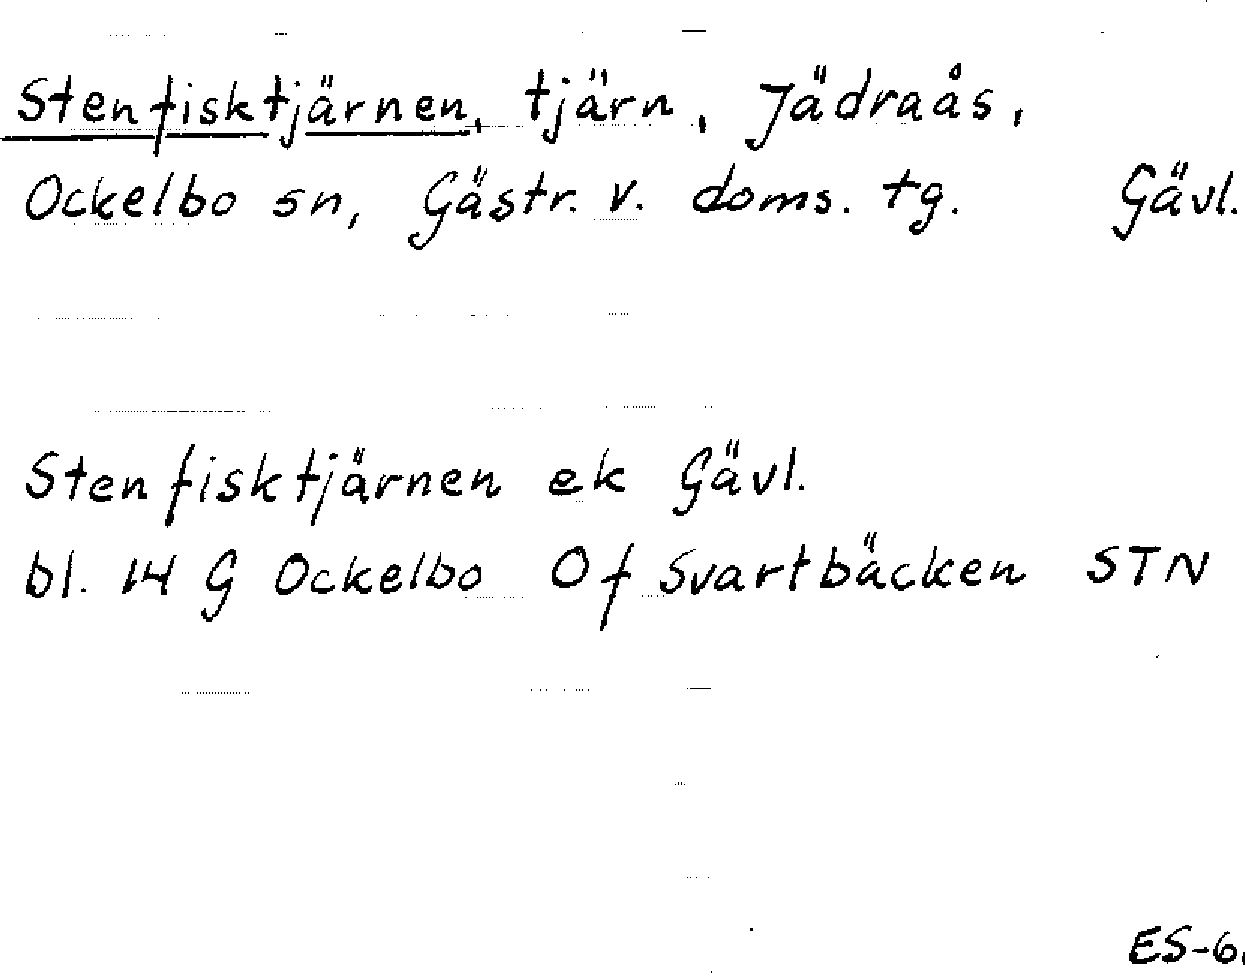 Stenfisktjärnen, tjärn, Jädraås,
Ockelbo sn, Gästr. v. doms. tg. Gävl.
Stenfisktjärnen ek Gävl.
bl. 14 G Ockelbo Of Svartbäcken STN
ES-6